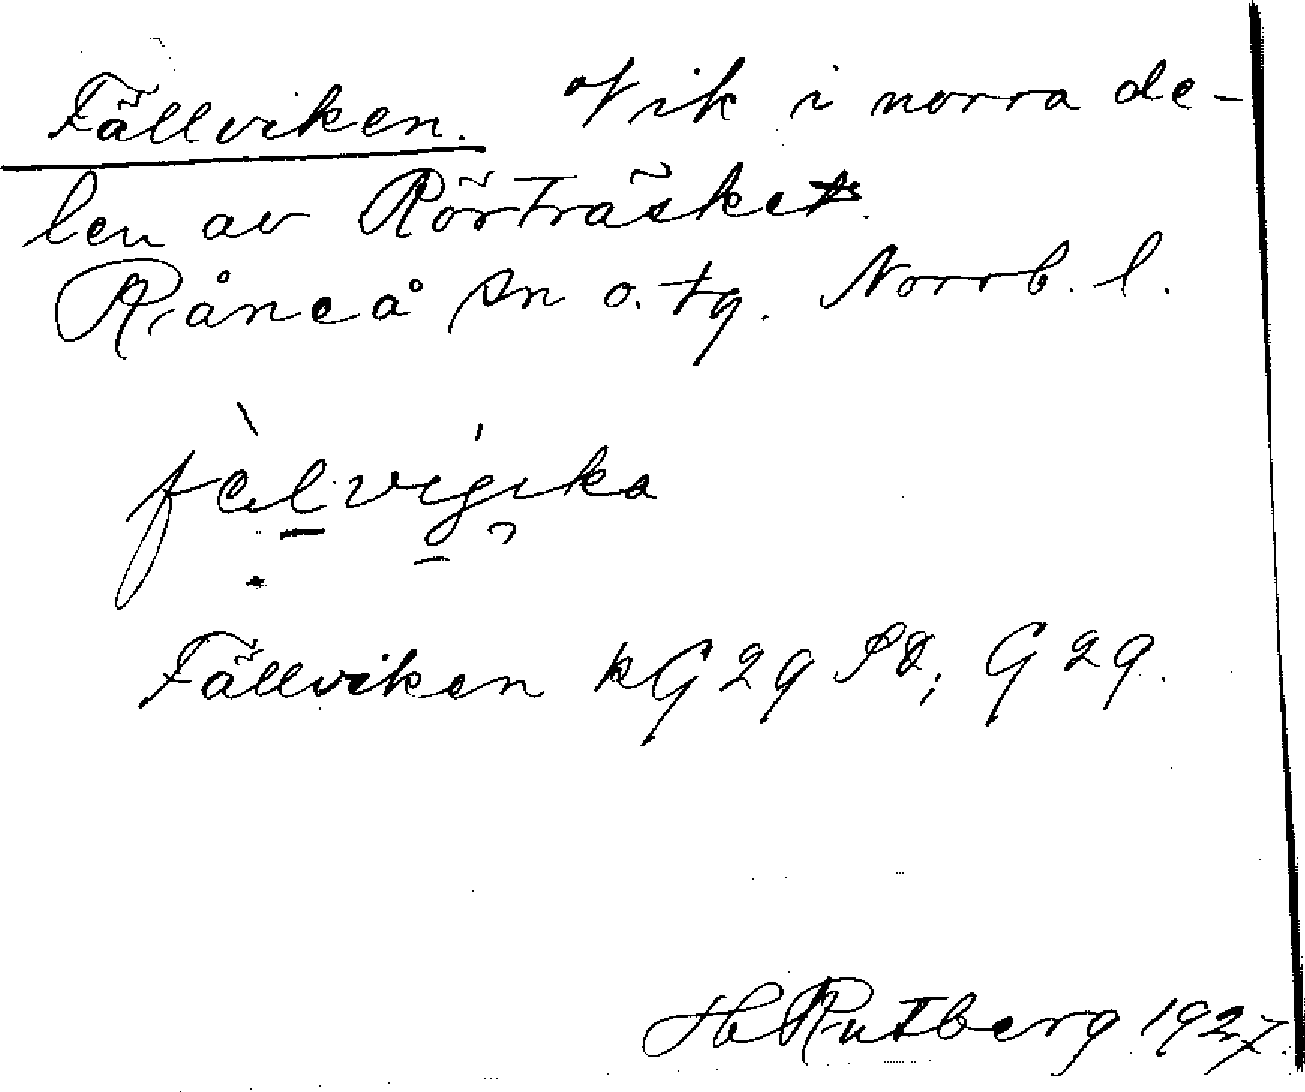 Fällviken. Vik i norra de-
len av Rörträsket.
Råneå sn o. tg. Norrb. l.
Fällviken kG 29 ; G 29.
H Rutberg 1927.